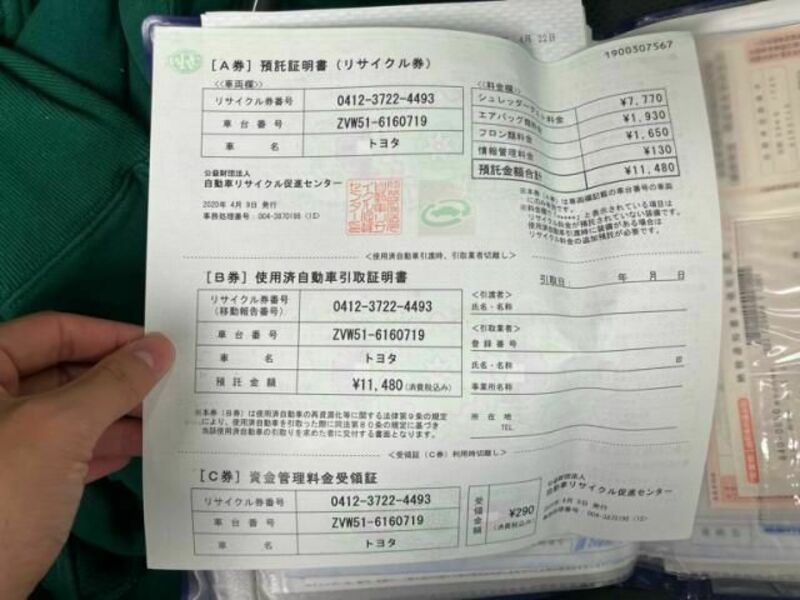 4月 22日
1900307567
[A券] 預託証明書(リサイクル券)
<<車両欄>>
リサイクル券番号 0412-3722-4493
車台番号 ZVW51-6160719
車名 トヨタ
<<料金欄>>
シュレッダーダスト料金 ¥7,770
エアバッグ類料金 ¥1,930
フロン類料金 ¥1,650
情報管理料金 ¥130
預託金額合計 ¥11,480
公益財団法人
自動車リサイクル促進センター
2020年 4月 9日 発行
事務処理番号:004-3870195 (1S)
※本券(A券)は車両欄記載の車台番号の車両
にのみ有効です。
※料金欄に「*****」と表示されている項目は
リサイクル料金が預託されていない装備です。
使用済自動車引渡時に装備がある場合は
リサイクル料金の追加預託が必要です。
<使用済自動車引渡時、引取業者切離し>
[B券] 使用済自動車引取証明書
引取日: 年 月 日
リサイクル券番号
(移動報告番号) 0412-3722-4493
車台番号 ZVW51-6160719
車名 トヨタ
預託金額 ¥11,480 (消費税込み)
<引渡者>
氏名・名称
<引取業者>
登録番号
氏名・名称 印
事業所名称
所在地
TEL
※本券(B券)は使用済自動車の再資源化等に関する法律第9条の規定
により、使用済自動車を引取った際に同法第80条の規定に基づき
当該使用済自動車の引取りを求めた者に交付する書面となります。
<受領証(C券)利用時切離し>
[C券] 資金管理料金受領証
リサイクル券番号 0412-3722-4493
車台番号 ZVW51-6160719
車名 トヨタ
受領金額 ¥290
(消費税込み)
公益財団法人
自動車リサイクル促進センター
2020年 4月 9日 発行
事務処理番号:004-3870195 (1S)